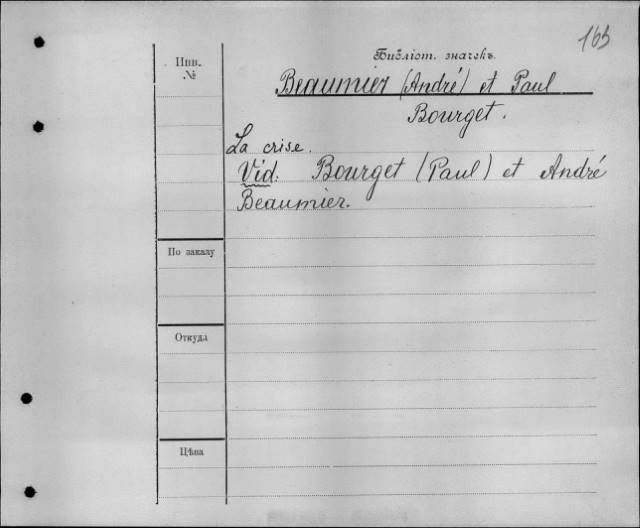 165
Инв.
№
Библіот. значекъ
Beaumier (André) et Paul
Bourget.
La crise.
Vid. Bourget (Paul) et André
Beaumier.
По заказу
Откуда
Цѣна